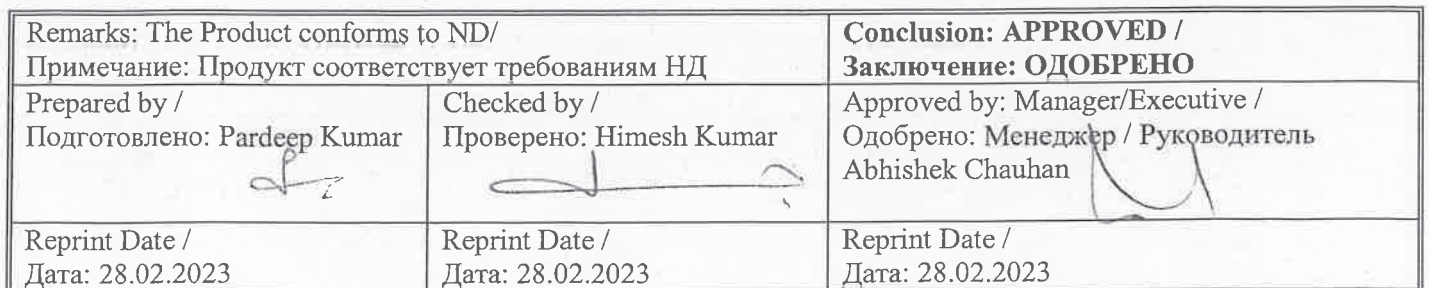 Remarks: The Product conforms to ND/
Примечание: Продукт соответствует требованиям НД
Conclusion: APPROVED /
Заключение: ОДОБРЕНО
Prepared by /
Подготовлено: Pardeep Kumar
Checked by /
Проверено: Himesh Kumar
Approved by: Manager/Executive /
Одобрено: Менеджер / Руководитель
Abhishek Chauhan
Reprint Date /
Дата: 28.02.2023
Reprint Date /
Дата: 28.02.2023
Reprint Date /
Дата: 28.02.2023